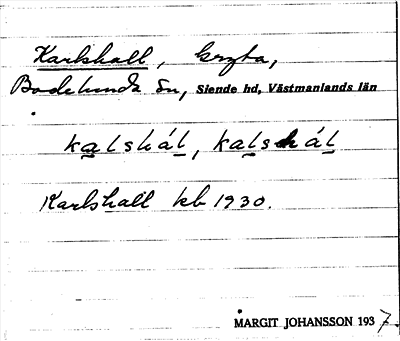 Karlshall, bryta,
Badelunda sn, Siende hd, Västmanlands län
kalshál, kalshál
Karlshall kb 1930.
MARGIT JOHANSSON 1937.